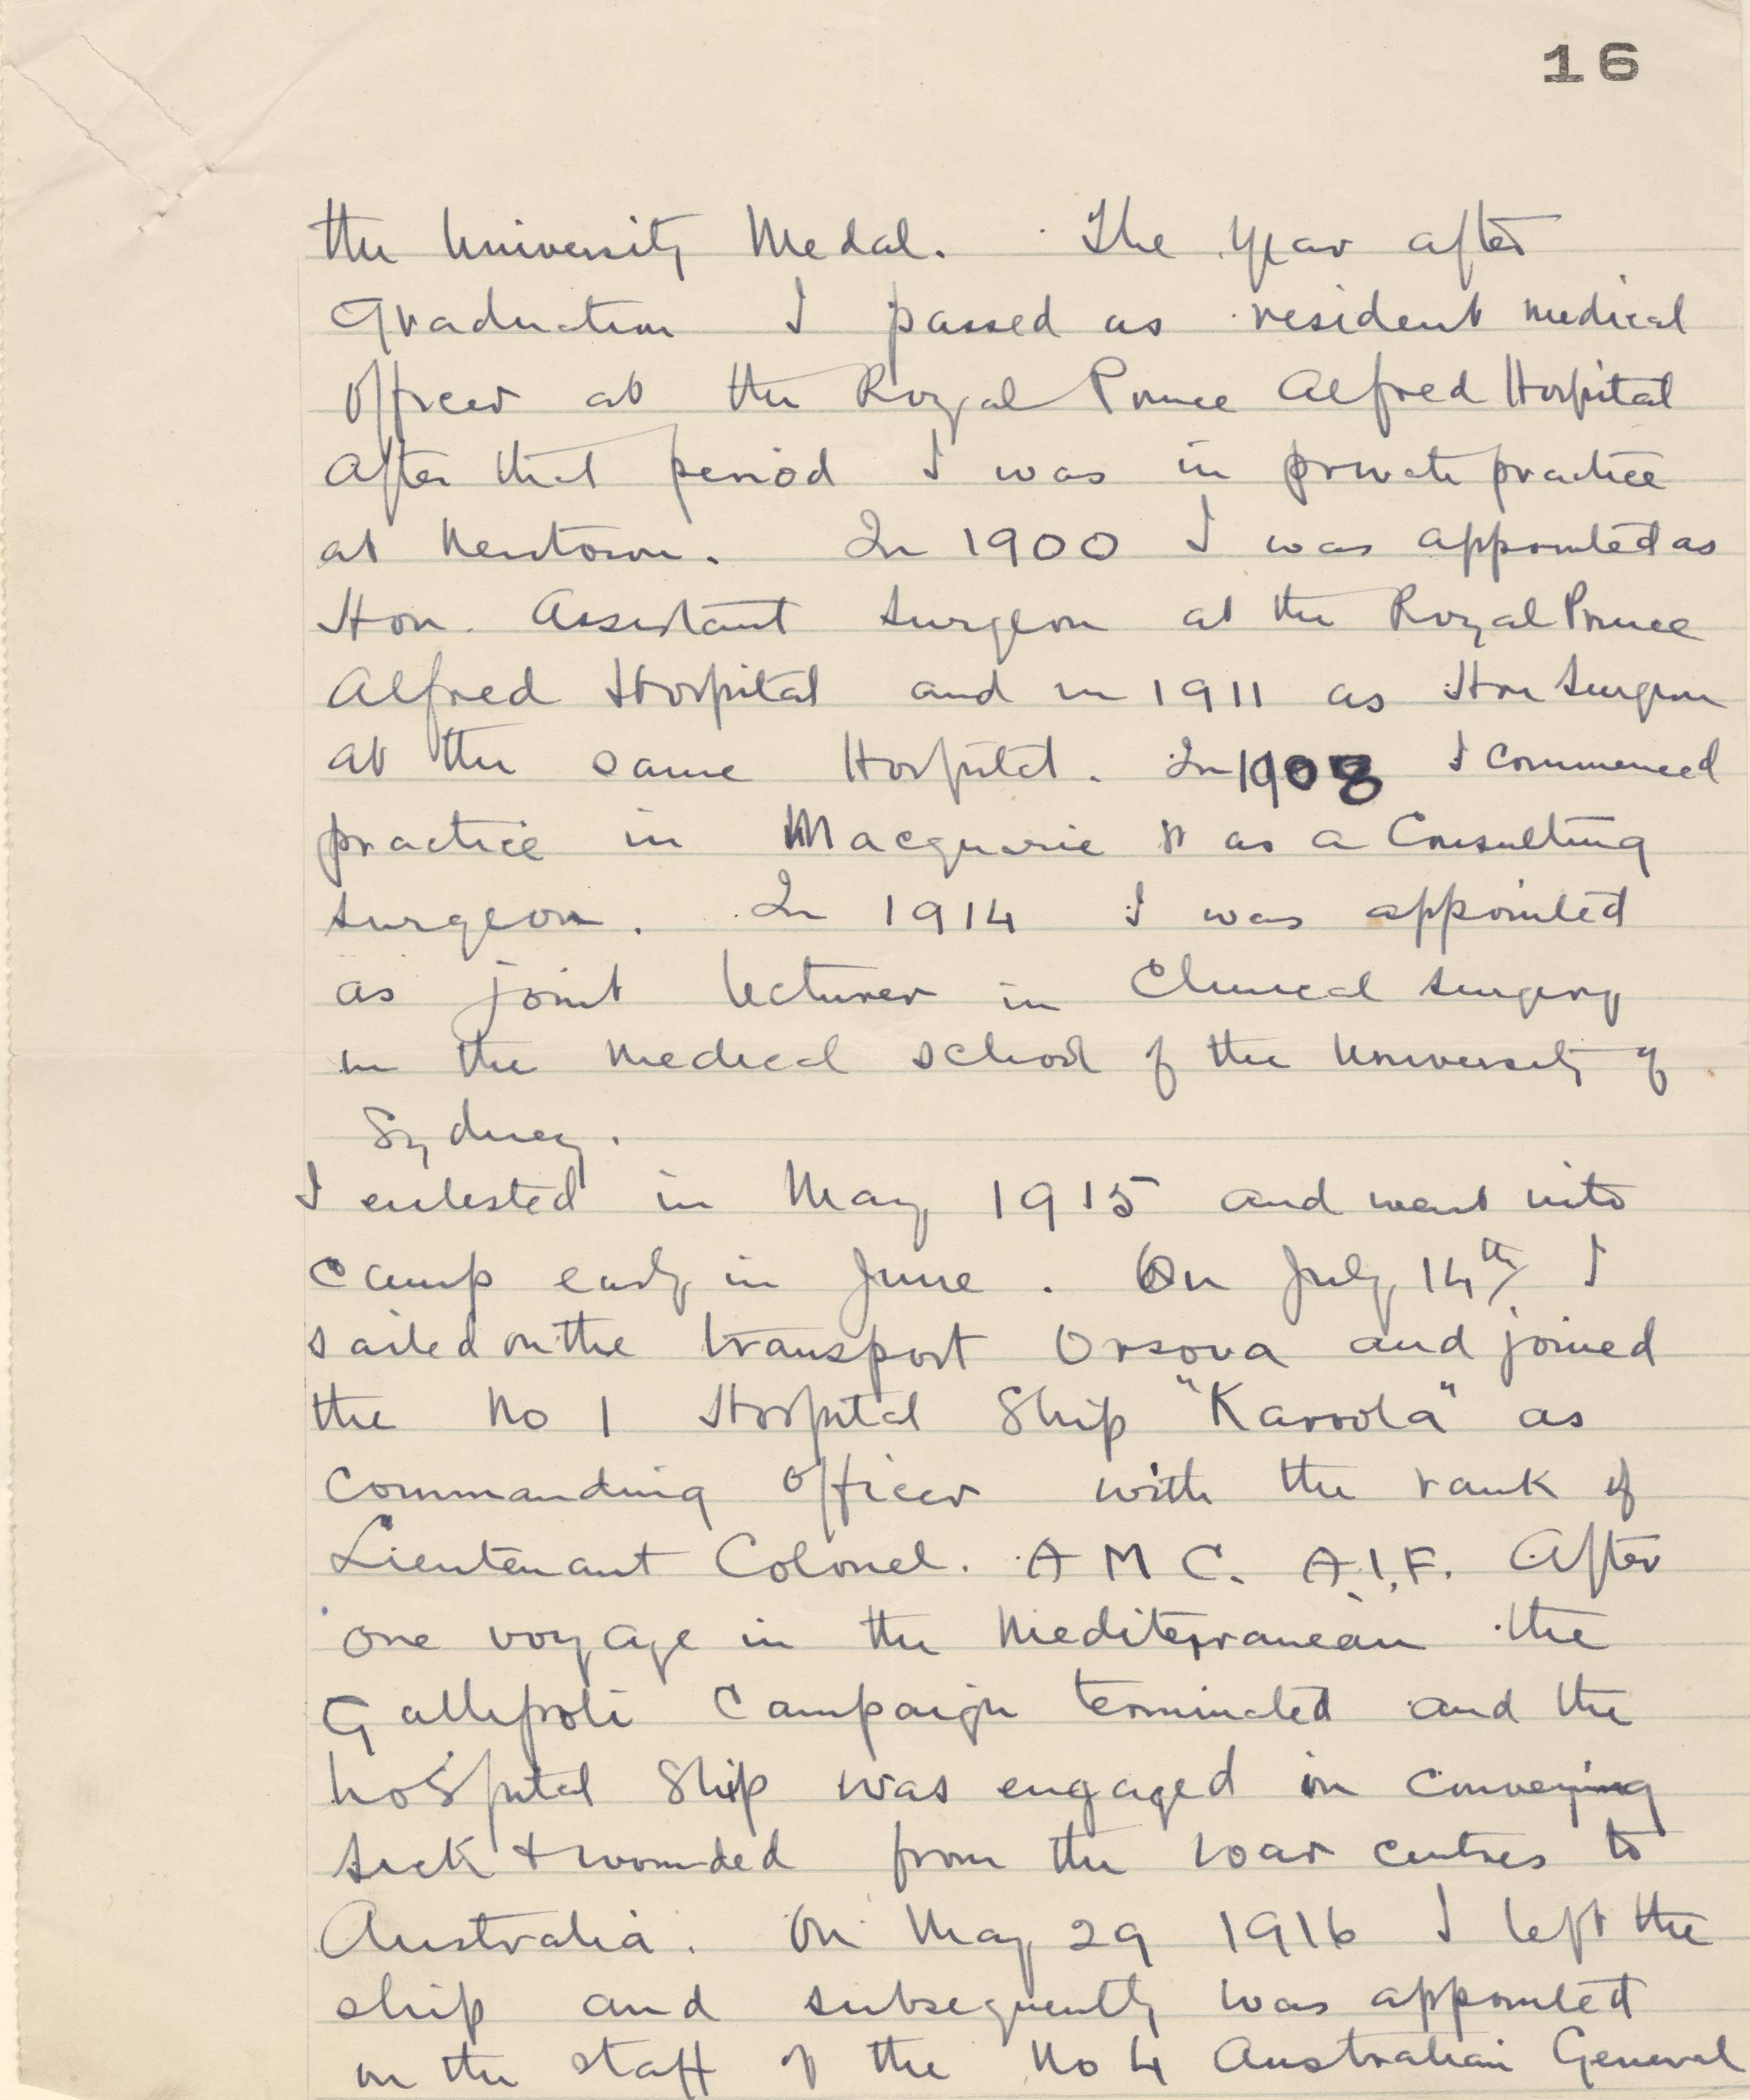 16
the University Medal. The year after
Graduation I passed as resident medical
Officer at the Royal Prince Alfred Hospital
After that period I was in private practice
at Newtown. In 1900 I was appointed as
Hon. Assistant Surgeon at the Royal Prince
Alfred Hospital and in 1911 as Hon Surgeon
at the same Hospital. In 1908 I commenced
practice in Macquarie St as a Consulting
Surgeon. In 1914 I was appointed
as joint lecturer in Clinical Surgery
in the Medical School of the University of
Sydney.
I enlisted in May 1915 and went into
camp early in June. On July 14th I
sailed on the transport Orsova and joined
the No 1 Hospital Ship "Karoola" as
Commanding Officer with the rank of
Lieutenant Colonel. A M C. A.I.F. After
one voyage in the Mediterranean the
Gallipoli Campaign terminated and the
hospital Ship was engaged in conveying
sick + wounded from the war centres to
Australia. On May 29 1916 I left the
ship and subsequently was appointed
on the staff of the No 4 Australian General